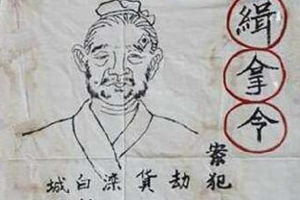 緝拿令
案犯
劫
貨
白
城